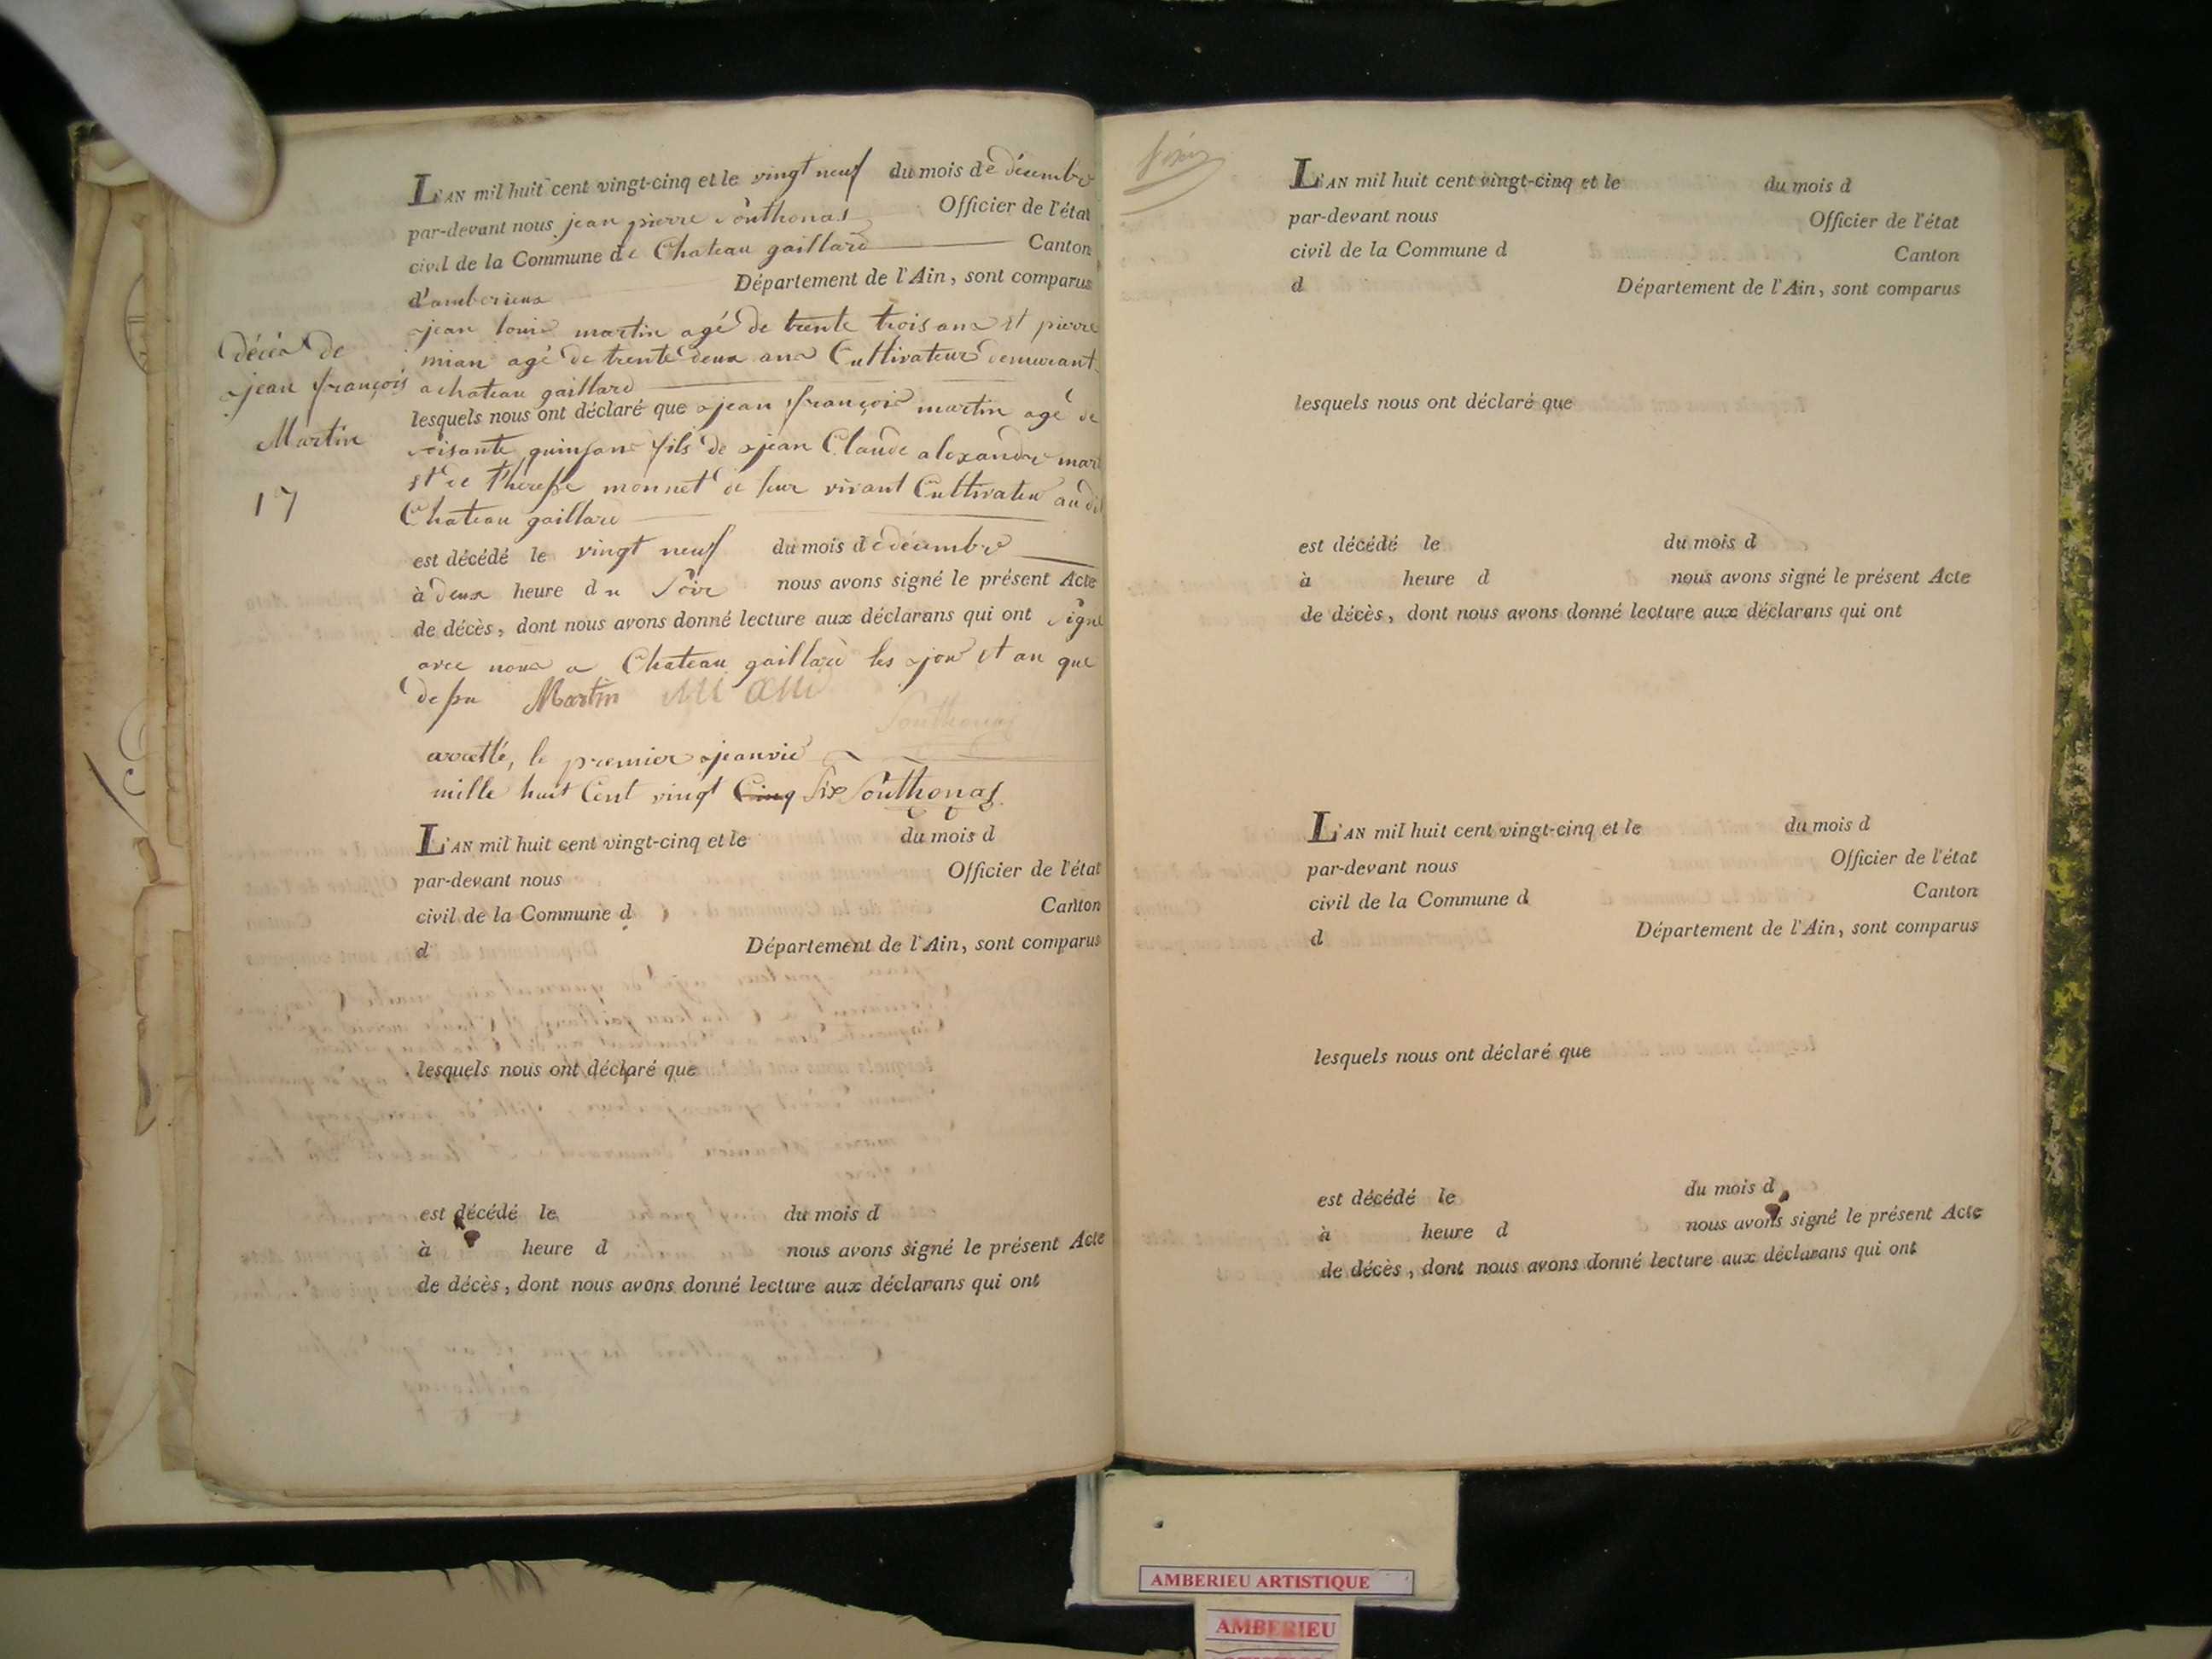 L'AN mil huit cent vingt-cinq et le vingt neuf du mois de décembre
par-devant nous jean pierre Southonas Officier de l'état
civil de la Commune de Chateau gaillard Canton
d'amberieux Département de l'Ain, sont comparus
jean louis martin agé de trente trois ans et pierre
mian agé de trente deux ans Cultivateurs demurant
a chateau gaillard
lesquels nous ont déclaré que jean françois martin agé de
soisante quinzans fils de jean Claude alexandre mar
et de theresse monnet de leur vivant Cultivateu au dit
Chateau gaillard
est décédé le vingt neuf du mois de décembre
à deux heure du Soir nous avons signé le présent Acte
de décès, dont nous avons donné lecture aux déclarans qui ont Signé
avec nous a Chateau gaillard les jour et an que
dessu Martin Mian
Southonas
décés de
jean françois
Martin
17
arretté, le premier jeanvié
mille huit Cent vingt Cinq Six Southonas
L'AN mil huit cent vingt-cinq et le du mois d
par-devant nous Officier de l'état
civil de la Commune d Canton
d Département de l'Ain, sont comparus
lesquels nous ont déclaré que
est décédé le du mois d
à heure d nous avons signé le présent Acte
de décès, dont nous avons donné lecture aux déclarans qui ont
L'AN mil huit cent vingt-cinq et le du mois d
par-devant nous Officier de l'état
civil de la Commune d Canton
d Département de l'Ain, sont comparus
lesquels nous ont déclaré que
est décédé le du mois d
à heure d nous avons signé le présent Acte
de décès, dont nous avons donné lecture aux déclarans qui ont
L'AN mil huit cent vingt-cinq et le du mois d
par-devant nous Officier de l'état
civil de la Commune d Canton
d Département de l'Ain, sont comparus
lesquels nous ont déclaré que
est décédé le du mois d
à heure d nous avons signé le présent Acte
de décès, dont nous avons donné lecture aux déclarans qui ont
AMBERIEU ARTISTIQUE
AMBERIEU